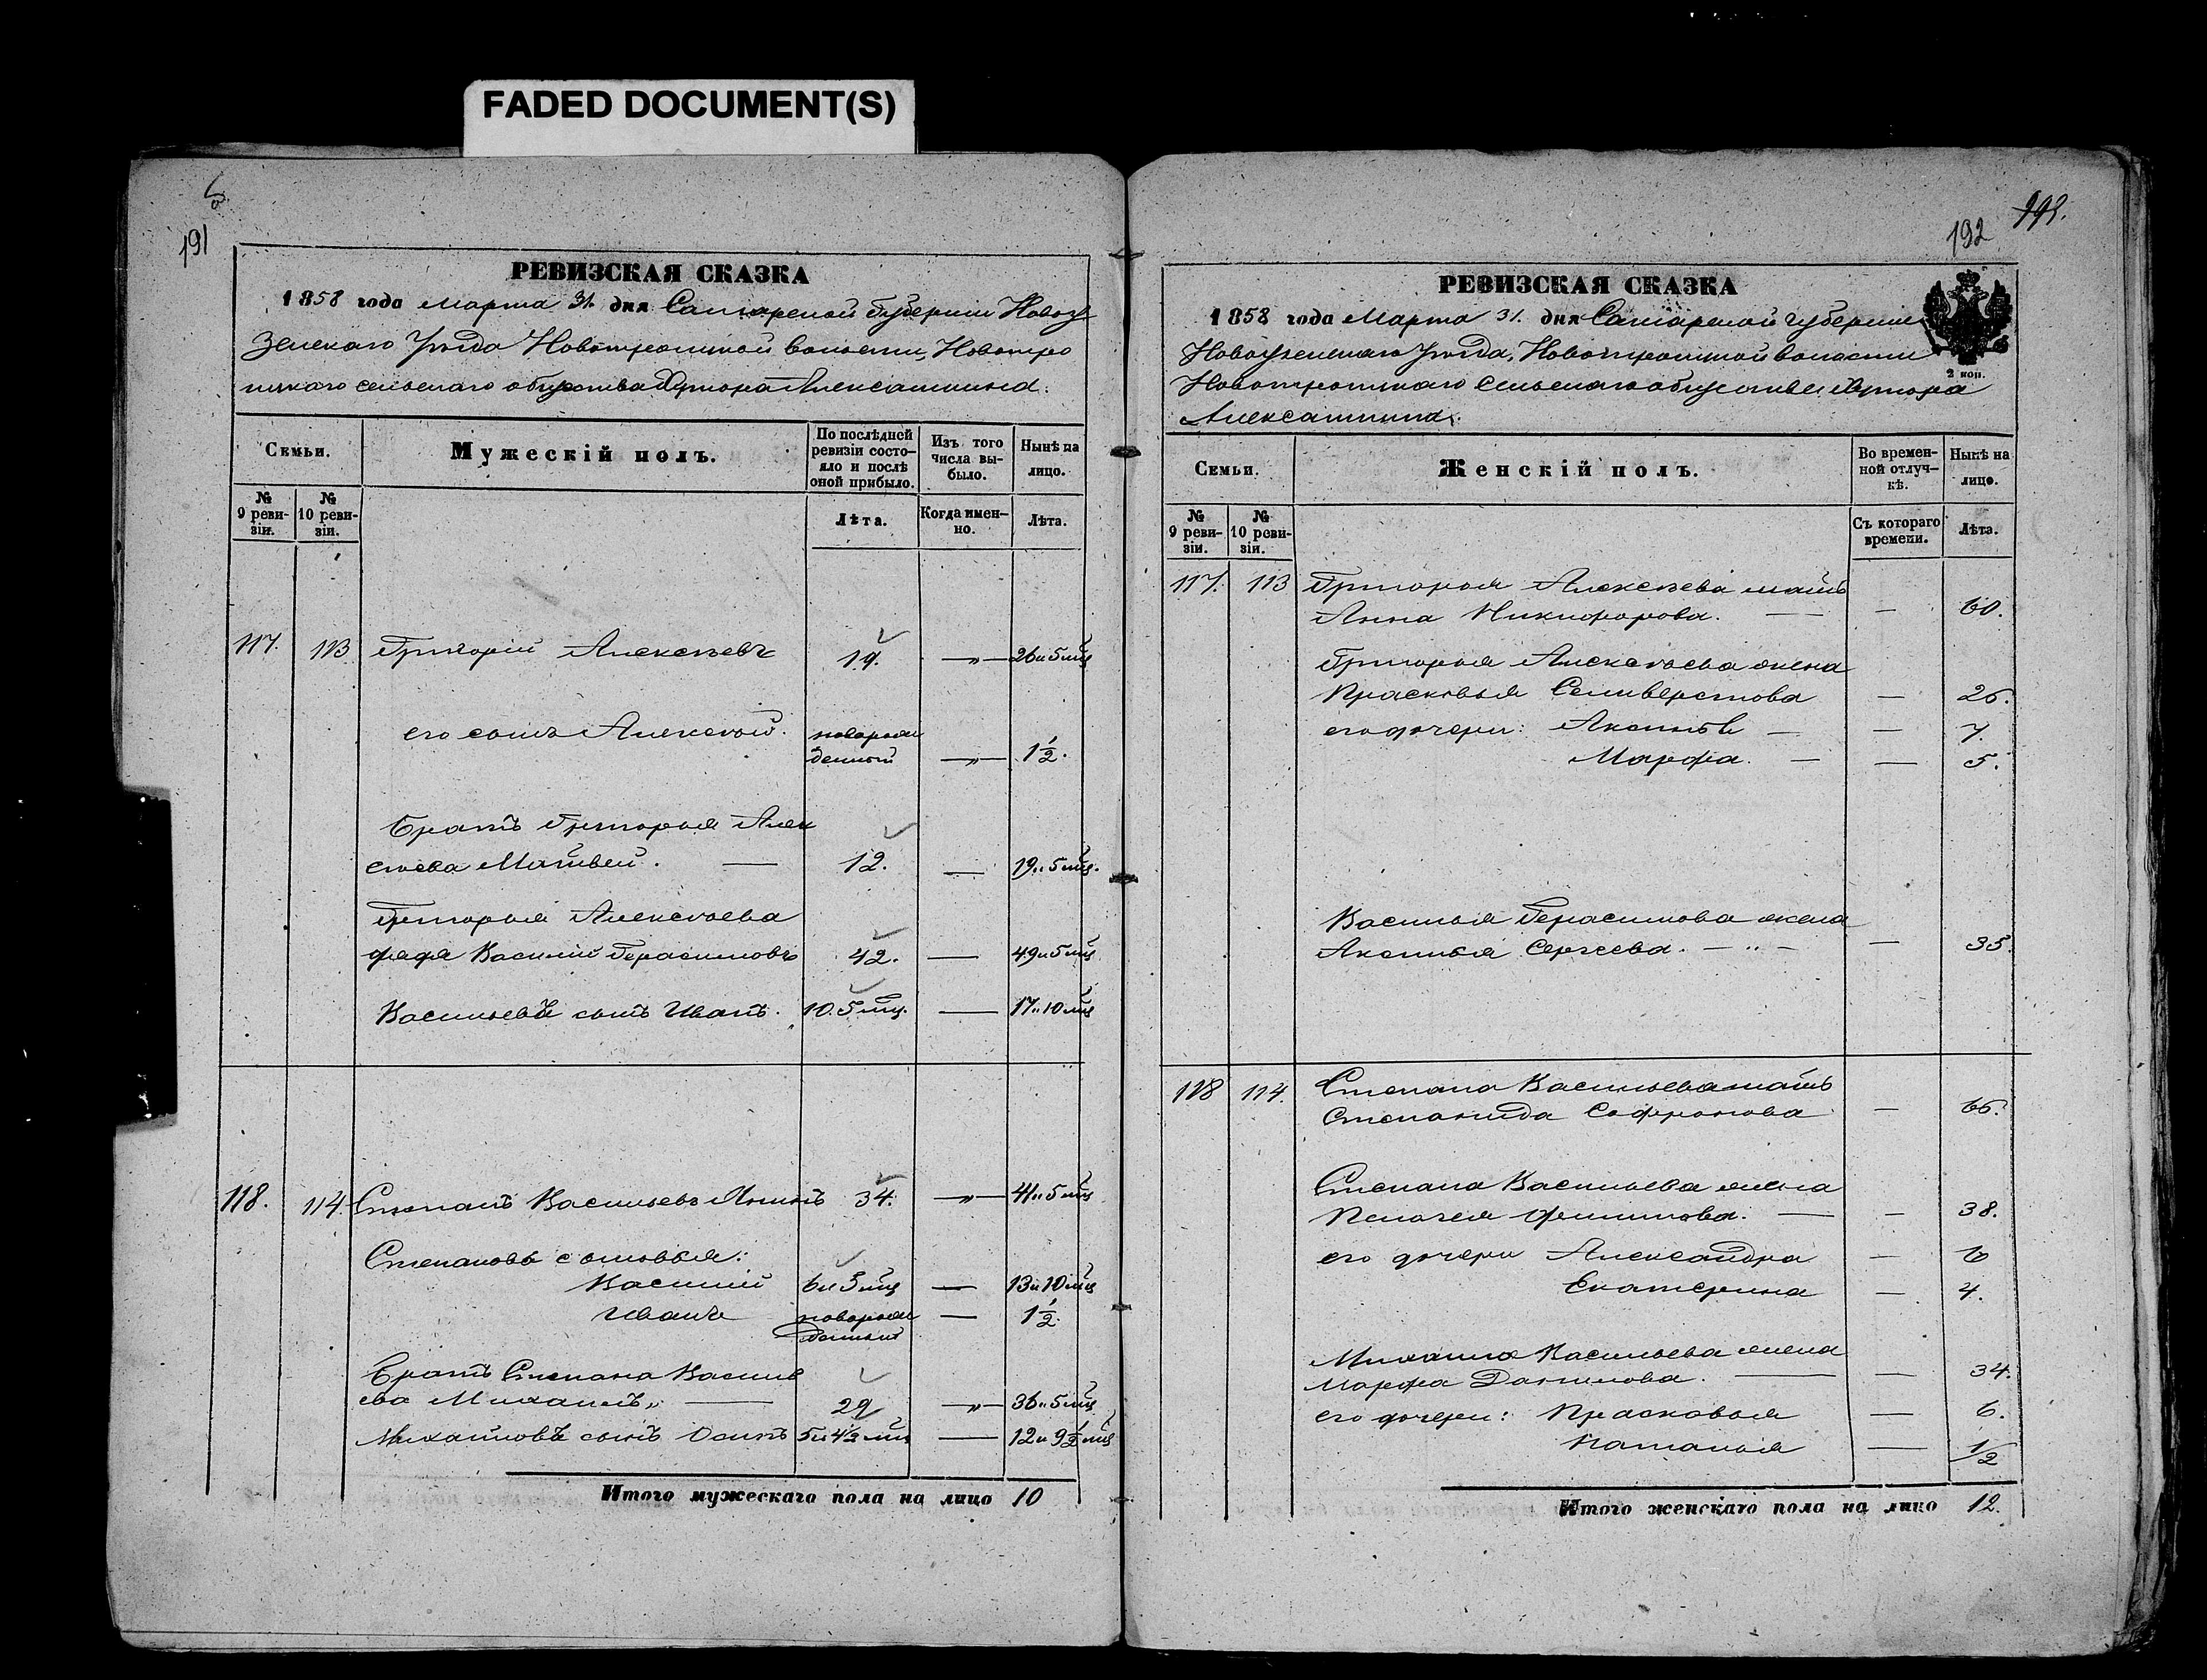 FADED DOCUMENT(S)
191
РЕВИЗСКАЯ СКАЗКА
1858 года Марта 31. дня Самарской Губернии Новоу
зенскаго Уѣзда Новотроицкой Волости, Новотро
ицкаго сельскаго общества Хутора Алексашкина.
Семьи.
Мужескій полъ.
По послѣдней ревизіи состояло и послѣ оной прибыло.
Изъ того числа выбыло.
Нынѣ на лицо.
№ 9 ревизіи.
№ 10 ревизіи.
Лѣта.
Когда именно.
Лѣта.
117. 113 Григорій Алексѣевъ 19. —„— 26 и 5 мц
его сынъ Алексѣй. новорож
денный —„— 1½.
Братъ Григорья Алек
сѣева Матвей. — 12. — 19 „ 5 мц.
Григорья Алексѣева
дядя Василій Герасимовъ 42. — 49 и 5 мц
Васильевъ сынъ Иванъ. 10. 5 мц. — 17 „ 10 мц
118. 114. Степанъ Васильевъ 34. —„— 41 „ 5 мц
Степановы сыновья:
Василій 6 и 5 мц — 13 и 10 мц
Иванъ новорож — 1½.
денный
Братъ Степана Василь
ева Михаилъ „ — 29 —„— 36 „ 5 мц
Михайловъ сынъ Осипъ 5 и 4½ мц — 12 и 9½ мц
Итого мужескаго пола на лицо 10
192
РЕВИЗСКАЯ СКАЗКА
1858 года Марта 31. дня Самарской Губерніи
Новоузенскаго Уѣзда, Новотроицкой Волости
2 коп.
Новотроицкаго Сельскаго общества Хутора
Алексашкина.
Семьи.
Женскій полъ.
Во временной отлучкѣ.
Нынѣ на лицо.
№ 9 ревизіи.
№ 10 ревизіи.
Съ котораго времени.
Лѣта.
117. 113 Григорья Алексѣева мать
Анна Никифорова. — — 60.
Григорья Алексѣева жена
Прасковья Селиверстова — 26.
его дочери: Аксинья — — 7.
Марфа. — — 5.
Василья Герасимова жена
Аксинья Сергеева. — „ — — 35.
118 114. Степана Васильева мать
Степанида Софронова — 66.
Степана Васильева жена
Пелагея Филипова. — — 38.
его дочери Александра — 6
Екатерина — 4.
Михаила Васильева жена
Марфа Данилова. — — 34.
его дочери: Прасковья — 6.
Наталья — ½
Итого женскаго пола на лицо 12.